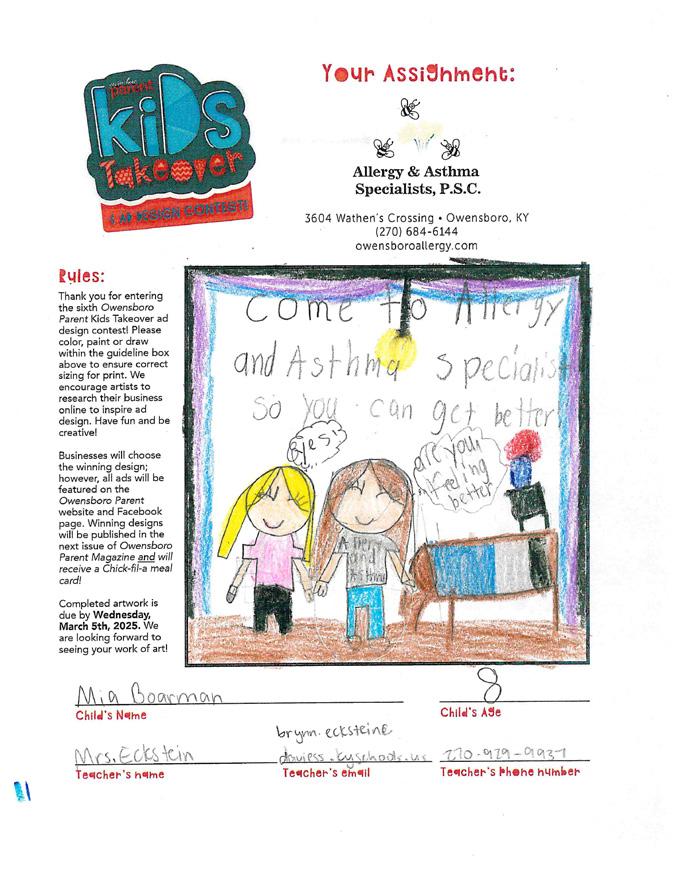 Your Assignment:
owensboro
parent
kids
Takeover
& AD DESIGN CONTEST!
Allergy & Asthma
Specialists, P.S.C.
3604 Wathen's Crossing • Owensboro, KY
(270) 684-6144
owensboroallergy.com
Rules:
Thank you for entering
the sixth Owensboro
Parent Kids Takeover ad
design contest! Please
color, paint or draw
within the guideline box
above to ensure correct
sizing for print. We
encourage artists to
research their business
online to inspire ad
design. Have fun and be
creative!
Businesses will choose
the winning design;
however, all ads will be
featured on the
Owensboro Parent
website and Facebook
page. Winning designs
will be published in the
next issue of Owensboro
Parent Magazine and will
receive a Chick-fil-a meal
card!
Completed artwork is
due by Wednesday,
March 5th, 2025. We
are looking forward to
seeing your work of art!
Come to Allergy
and Asthma specialist
so you can get better
yes!
are you
feeling
better
Allergy
and
Asthma
Mia Boarman
8
Child's Name
Child's Age
brynn.ecksteine
Mrs.Eckstein
daviess.kyschools.us
270-929-9937
Teacher's name
Teacher's email
Teacher's Phone number